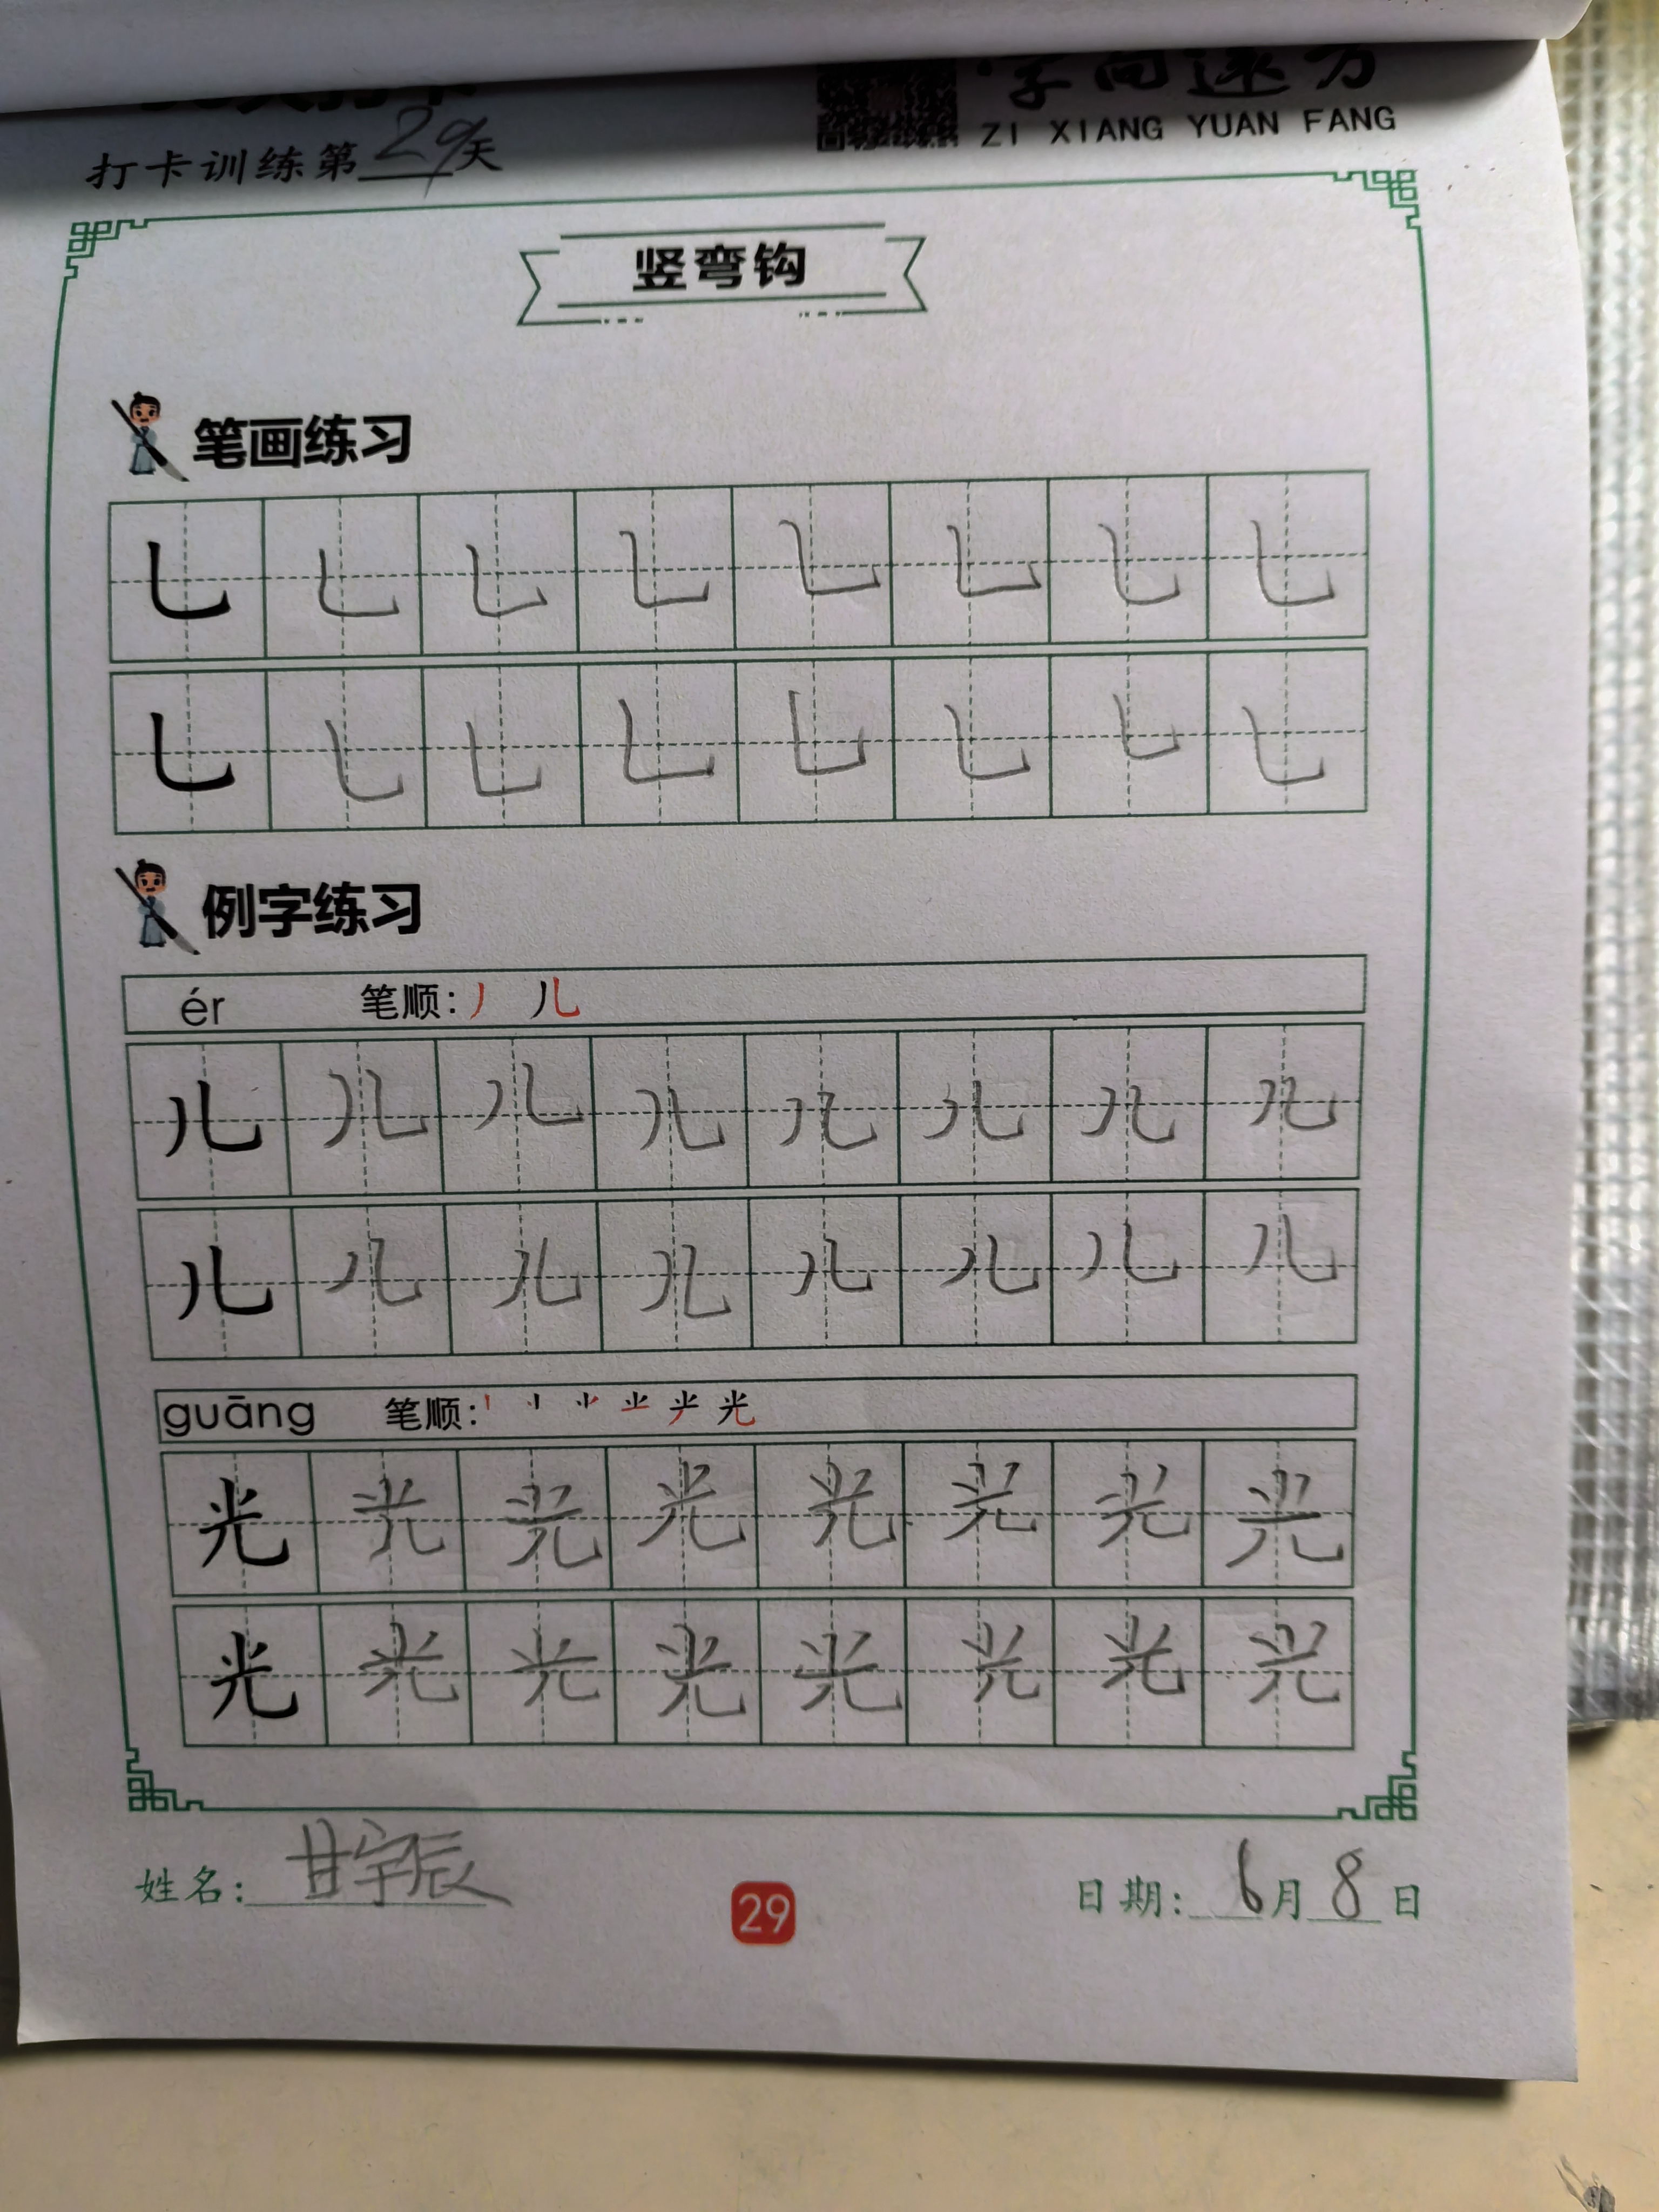 打卡训练第29天
ZI XIANG YUAN FANG
竖弯钩
笔画练习
乚 乚 乚 乚 乚 乚 乚 乚
乚 乚 乚 乚 乚 乚 乚 乚
例字练习
ér 笔顺:丿 儿
儿 儿 儿 儿 儿 儿 儿 儿
儿 儿 儿 儿 儿 儿 儿 儿
guāng 笔顺: 光
光 光 光 光 光 光 光 光
光 光 光 光 光 光 光 光
姓名: 甘宇辰
29
日期: 6月8日